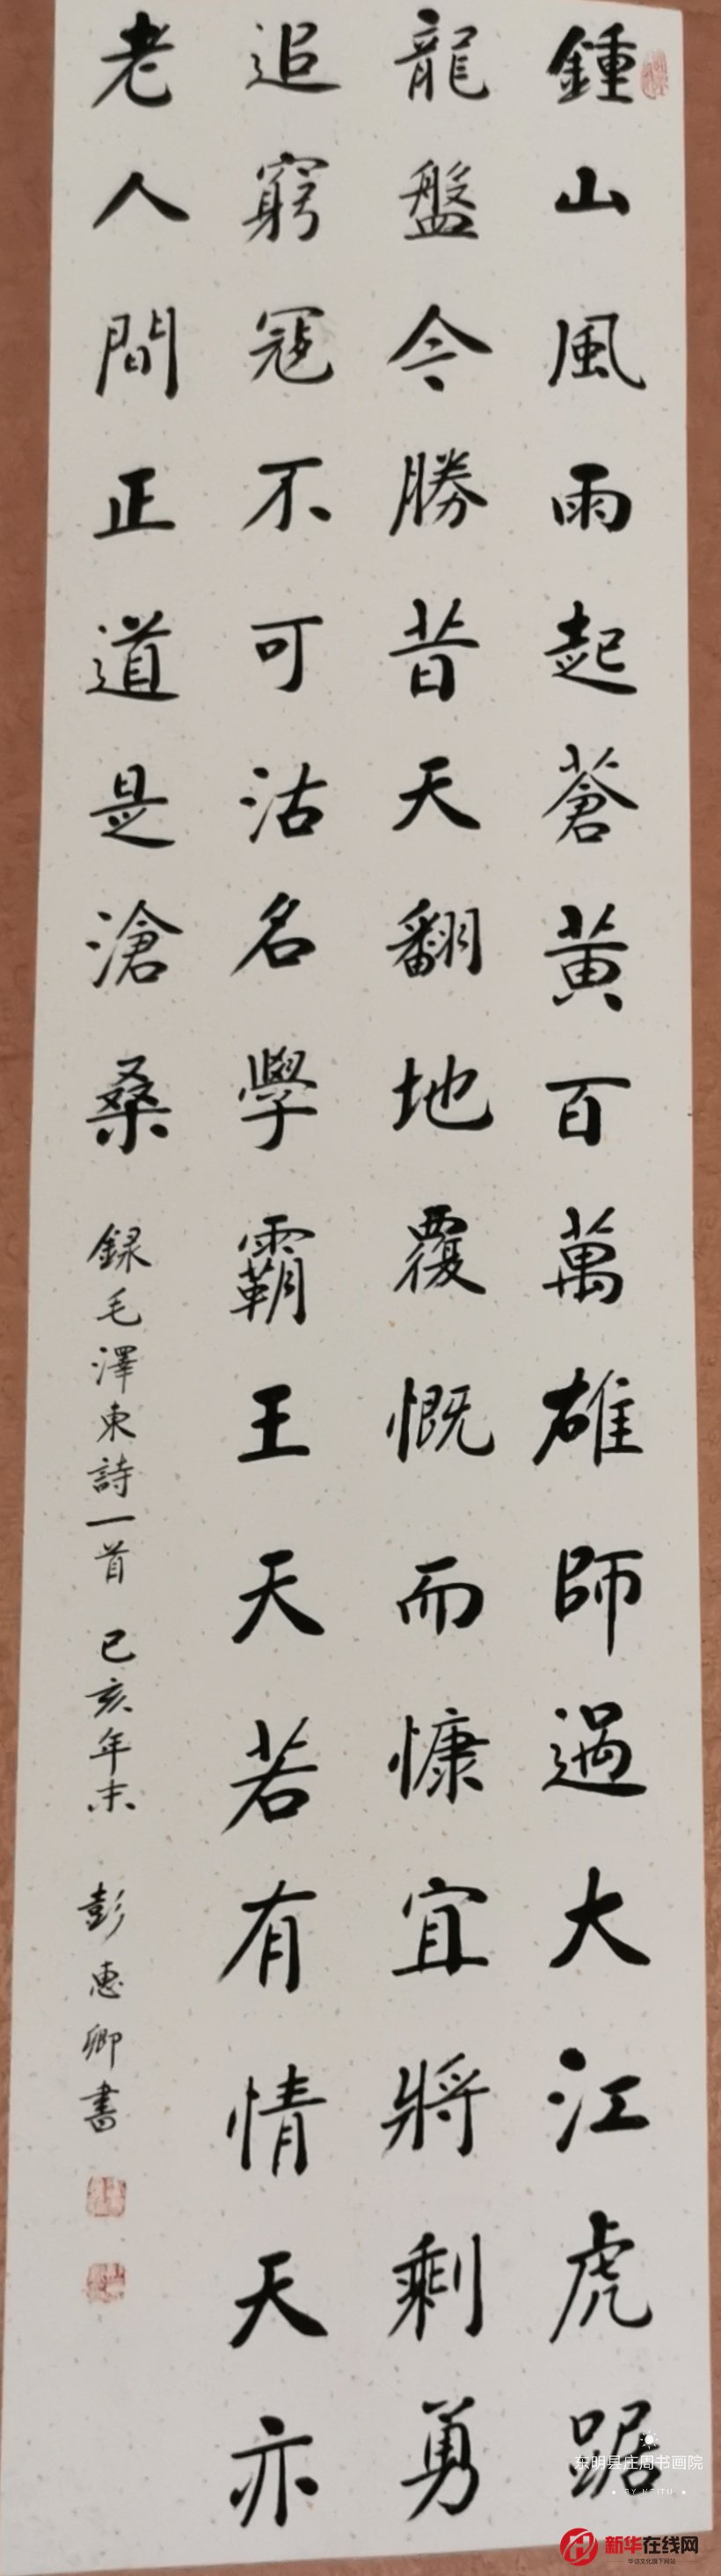 鍾山風雨起蒼黃百萬雄師過大江虎踞
龍盤今勝昔天翻地覆慨而慷宜將剩勇
追窮寇不可沽名學霸王天若有情天亦
老人間正道是滄桑
録毛澤東詩一首 己亥年末 彭惠卿書
东明县庄周书画院
BY MEITU
新华在线网